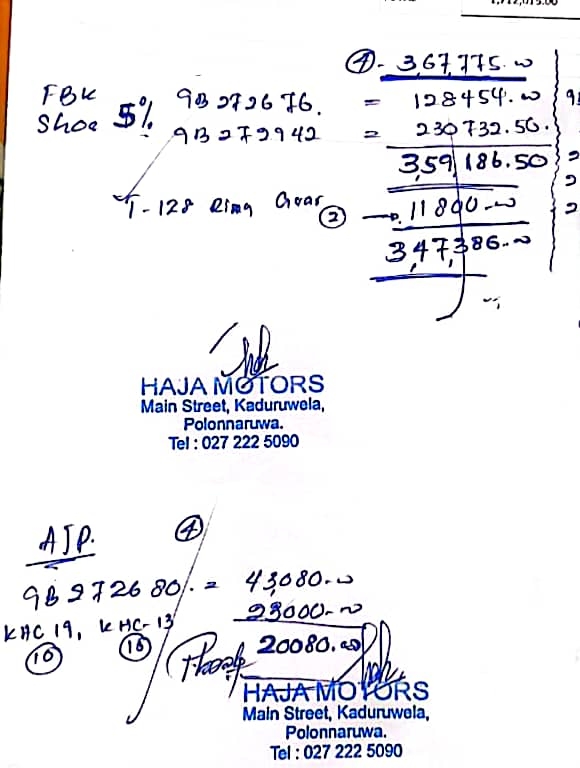 1,712,015.00
④ - 3,67,775.00
FBK 9B272676. = 128454.00
Shoe 5% 9B272942 = 230732.50.
3,59,186.50
T-128 Ring Gear ② → 11800-00
3,47,386.00
HAJA MOTORS
Main Street, Kaduruwela,
Polonnaruwa.
Tel : 027 222 5090
AJP. ④
9B272680/. = 43,080.00
23000-00
KHC 19, KHC-13 20080.00
⑩ ⑩
HAJA MOTORS
Main Street, Kaduruwela,
Polonnaruwa.
Tel : 027 222 5090